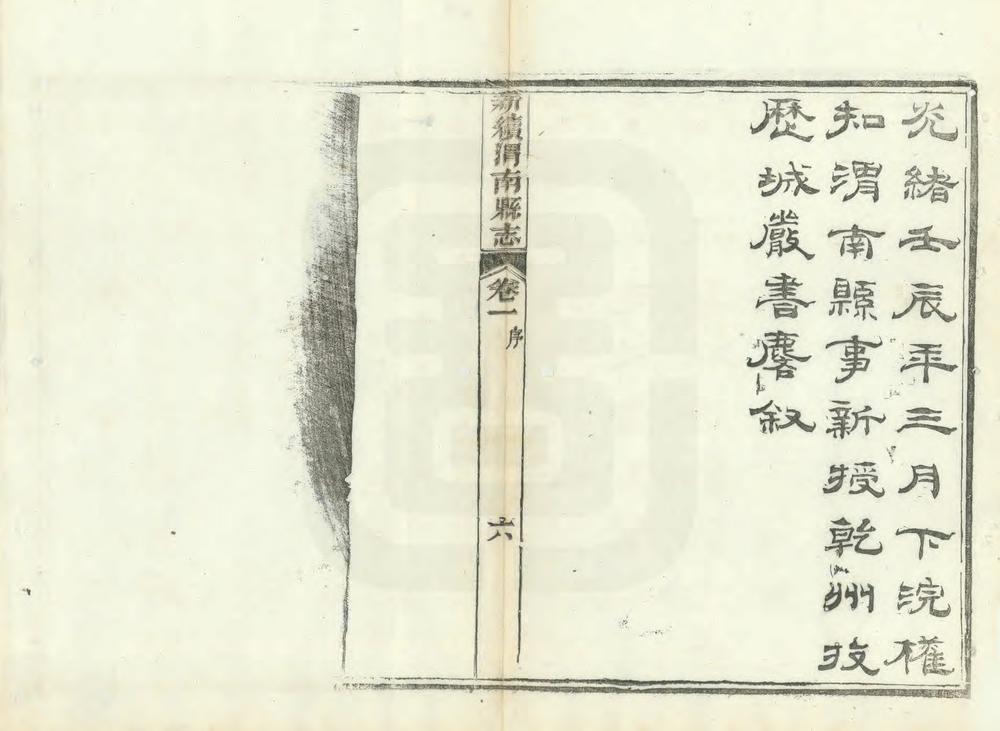 光緒壬辰年三月下浣權
知渭南縣事新授乾州牧
歷城嚴書麐叙
新續渭南縣志
卷一
序
六